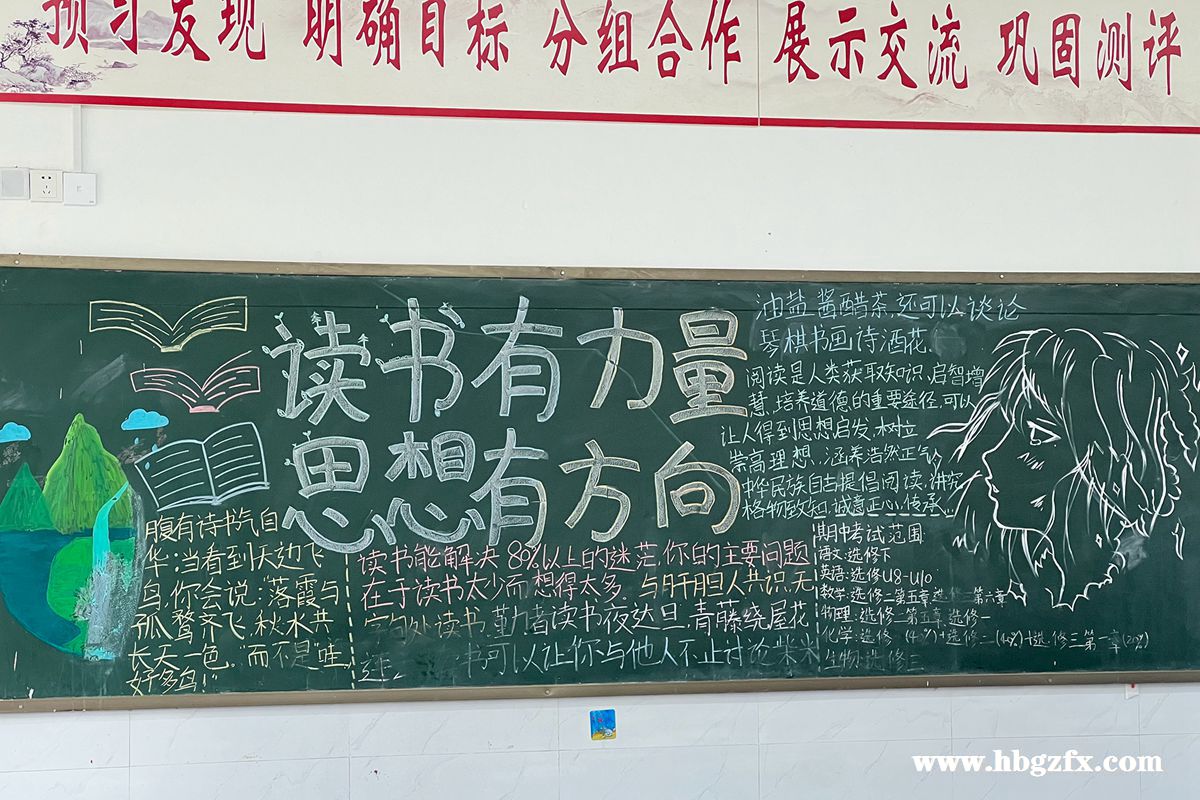 预习发现 明确目标 分组合作 展示交流 巩固测评
读书有力量
思想有方向
油盐酱醋茶,还可以谈论
琴棋书画诗酒花.
阅读是人类获取知识、启智增
慧、培养道德的重要途径,可以
让人得到思想启发,树立
崇高理想、涵养浩然正气,
中华民族自古提倡阅读,讲究
格物致知,诚意正心,传承...
腹有诗书气自
华:当看到天边飞
鸟,你会说:"落霞与
孤鹜齐飞,秋水共
长天一色。"而不是"哇,
好多鸟!"
读书能解决80%以上的迷茫,你的主要问题
在于读书太少而想得太多.与肝胆人共识,无
字句处读书.勤者读书夜达旦,青藤绕屋花
书可以让你与他人不止讨论柴米
期中考试范围
语文:选修下
英语:选修U8-U10
数学:选修二第五章 选修 第六章
物理:选修二第 章 选修一
化学:选修 (40%)+选修二(40%)+选修三第一章(20%)
生物:选修三
www.hbgzfx.com